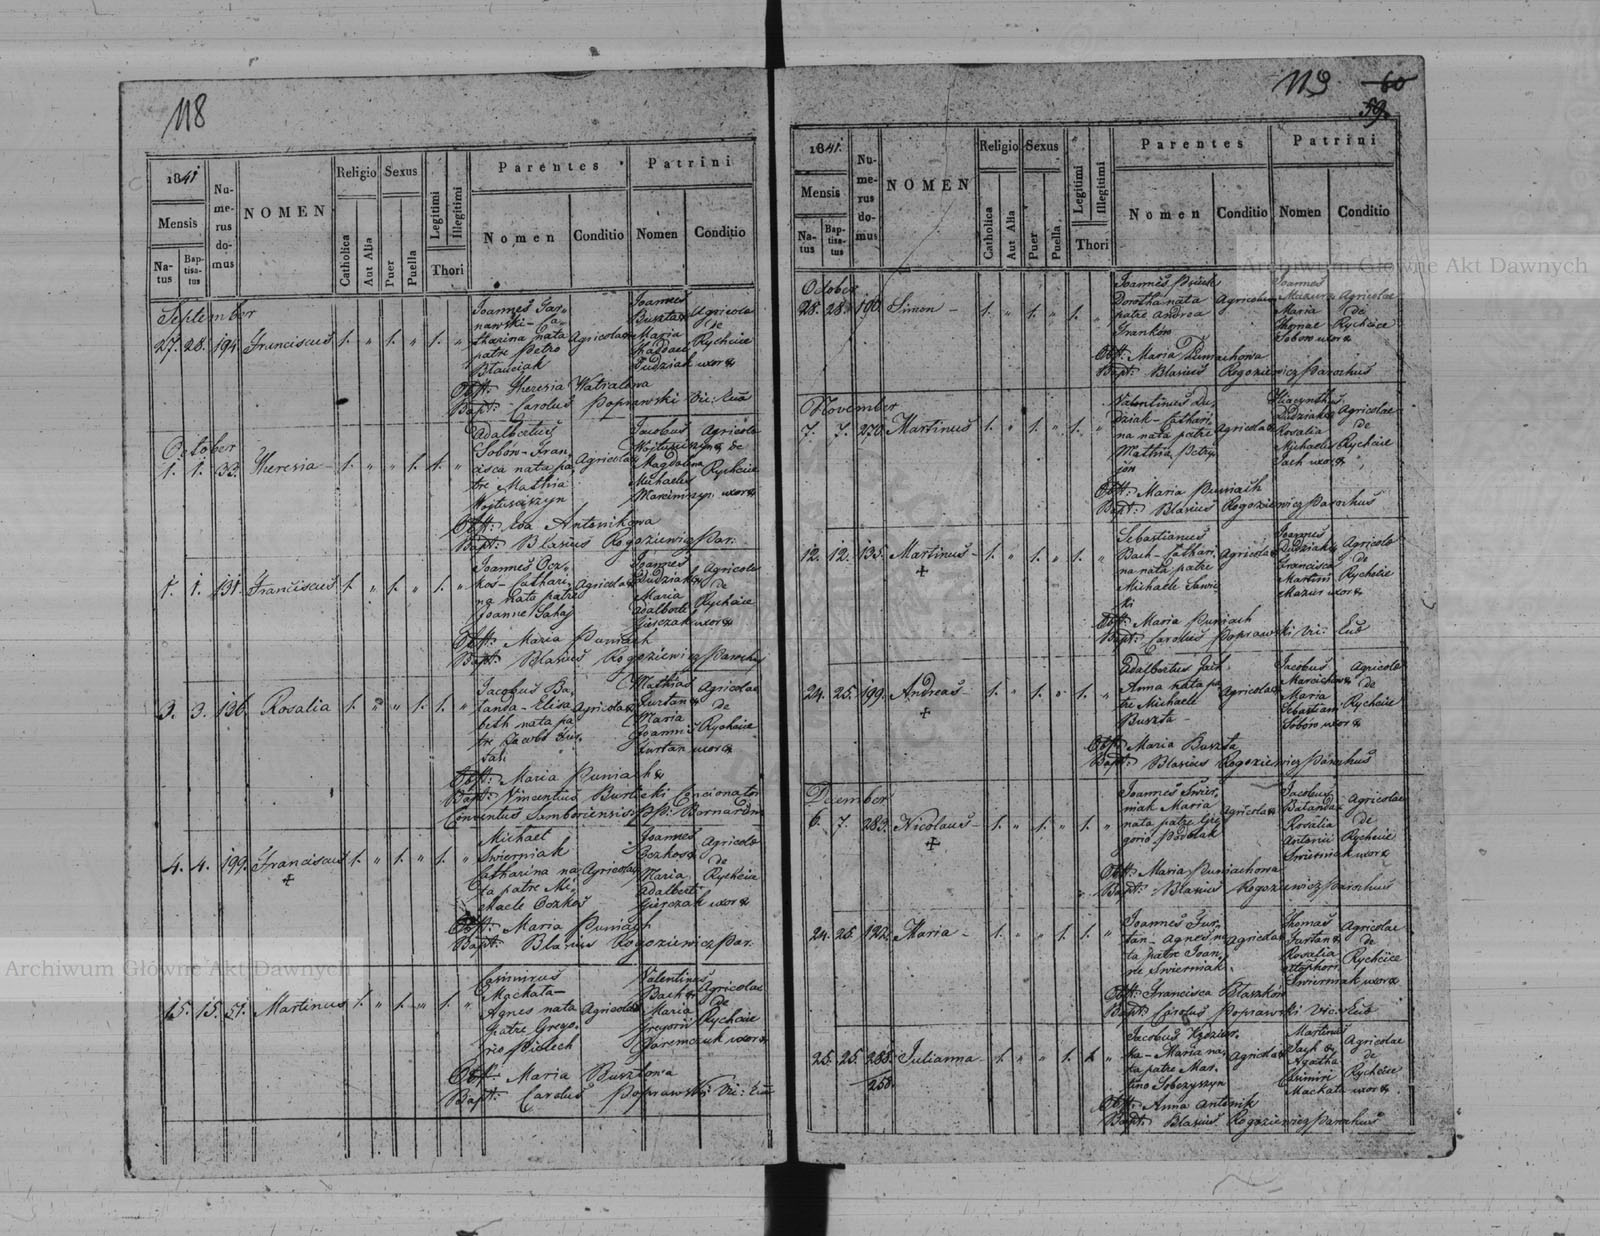 118
1841
Mensis
Na-
tus
Bap-
tisa-
tus
Nu-
me-
rus
do-
mus
NOMEN
Religio
Catholica
Aut Alia
Sexus
Puer
Puella
Legitimi
Illegitimi
Thori
Parentes
Nomen
Conditio
Patrini
Nomen
Conditio
September
27. 28. 194 Franciscus 1. " 1. " 1. "
Joannes Gar-
nawski - Ca-
tharina nata
patre Petro
Agricolae
Joannes
Buszta &
Maria
Dudziak uxor &
Agricolae
de
Rychcice
Obst: Theresia Watralowa
Bapt: Carolus Poprawski Vic:
October
1. 1. 33. Theresia 1. " " 1. 1. "
Adalbertus
Sobón - Fran-
cisca nata pa-
tre Mathia
Wojtuściszyn
Agricolae
Jacobus
Magdalena
Michaelis
uxor &
Agricolae
de
Rychcice
Obst: Eva Antonikowa
Bapt: Blasius Rogoziewicz Par:
1. 1. 131. Franciscus 1. " 1. " 1. "
Joannes Ocz-
kos - Cathari-
na nata patre
Joanne
Agricolae
Joannes
Dudziak &
Maria
Adalberti
Gierczak uxor &
Agricolae
de
Rychcice
Obst: Maria Puniach
Bapt: Blasius Rogoziewicz Parochus
3. 3. 136. Rosalia 1. " " 1. 1. "
Jacobus Ba-
tanda - Elisa-
beth nata pa-
tre Jacobo
Agricolae
Mathias
Furtan &
Maria
Joannis
Furtan uxor &
Agricolae
de
Rychcice
Obst: Maria Puniach
Bapt: Vincentius Concionator
Conventus Samboriensis PP: Bernardin
4. 4. 199. Franciscus 1. " 1. " "
Michael
Swierniak
Catharina na-
ta patre Mi-
chaele Oczkos
Agricolae
Joannes
Maria
Adalberti
Gierczak uxor &
Agricolae
de
Rychcice
Obst: Maria Puniach
Bapt: Blasius Rogoziewicz Par:
15. 15. 51. Martinus 1. " 1. " 1. "
Casimirus
Machata -
Agnes nata
patre Grego-
rio Pielech
Agricolae
Valentinus
Bach &
Maria
Gregorii
Jaremczuk uxor &
Agricolae
de
Rychcice
Obst: Maria Busztowa
Bapt: Carolus Poprawski Vic:
119
60
59.
1841.
Mensis
Na-
tus
Bap-
tisa-
tus
Nu-
me-
rus
do-
mus
NOMEN
Religio
Catholica
Aut Alia
Sexus
Puer
Puella
Legitimi
Illegitimi
Thori
Parentes
Nomen
Conditio
Patrini
Nomen
Conditio
October
28. 28. 190. Simon - 1. " 1. " 1. "
Joannes
Dorothea nata
patre Andrea
Agricolae
Joannes
Mazur &
Maria
Thomae
Sobón uxor &
Agricolae
de
Rychcice
Obst: Maria
Bapt: Blasius Rogoziewicz Parochus
November
7. 7. 270. Martinus 1. " 1. " 1. "
Valentinus Du-
dziak - Cathari-
na nata patre
Mathia
Agricolae
Hiacynthus
Dudziak &
Rosalia
Michaelis
Jach uxor &
Agricolae
de
Rychcice
Obst: Maria Puniach
Bapt: Blasius Rogoziewicz Parochus
12. 12. 135. Martinus - 1. " 1. " 1. "
Sebastianus
Bach - Cathari-
na nata patre
Michaele Sawic-
ki
Agricolae
Joannes
Dudziak &
Francisca
Martini
Mazur uxor &
Agricolae
de
Rychcice
Obst: Maria Puniach
Bapt: Carolus Poprawski Vic:
24. 25. 199. Andreas - 1. " 1. " 1. "
Adalbertus Jach
Anna nata pa-
tre Michaele
Buszta -
Agricolae
Jacobus
Maria
Sebastiani
Sobón uxor &
Agricolae
de
Rychcice
Obst: Maria Buszta
Bapt: Blasius Rogoziewicz Parochus
December
6. 7. 283. Nicolaus - 1. " 1. " 1. "
Joannes Swier-
niak Maria
nata patre Gre-
gorio
Agricolae
Jacobus
Batanda &
Rosalia
Antonii
Swierniak uxor &
Agricolae
de
Rychcice
Obst: Maria Puniachowa
Bapt: Blasius Rogoziewicz Parochus
24. 25. 122. Maria - 1. " " 1. 1. "
Joannes Fur-
tan - Agnes na-
ta patre Joan-
ne Swierniak
Agricolae
Thomas
Furtan &
Rosalia
Swierniak uxor &
Agricolae
de
Rychcice
Obst: Francisca
Bapt: Carolus Poprawski Vic:
25. 25. 285. Julianna - 1. " " 1. 1. "
258.
Jacobus
Maria na-
ta patre Mar-
tino Sobczyszyn
Agricolae
Martinus
Jach &
Agatha
Casimiri
Machata uxor &
Agricolae
de
Rychcice
Obst: Anna Antonik
Bapt: Blasius Rogoziewicz Parochus
Archiwum Główne Akt Dawnych
Archiwum Główne Akt Dawnych